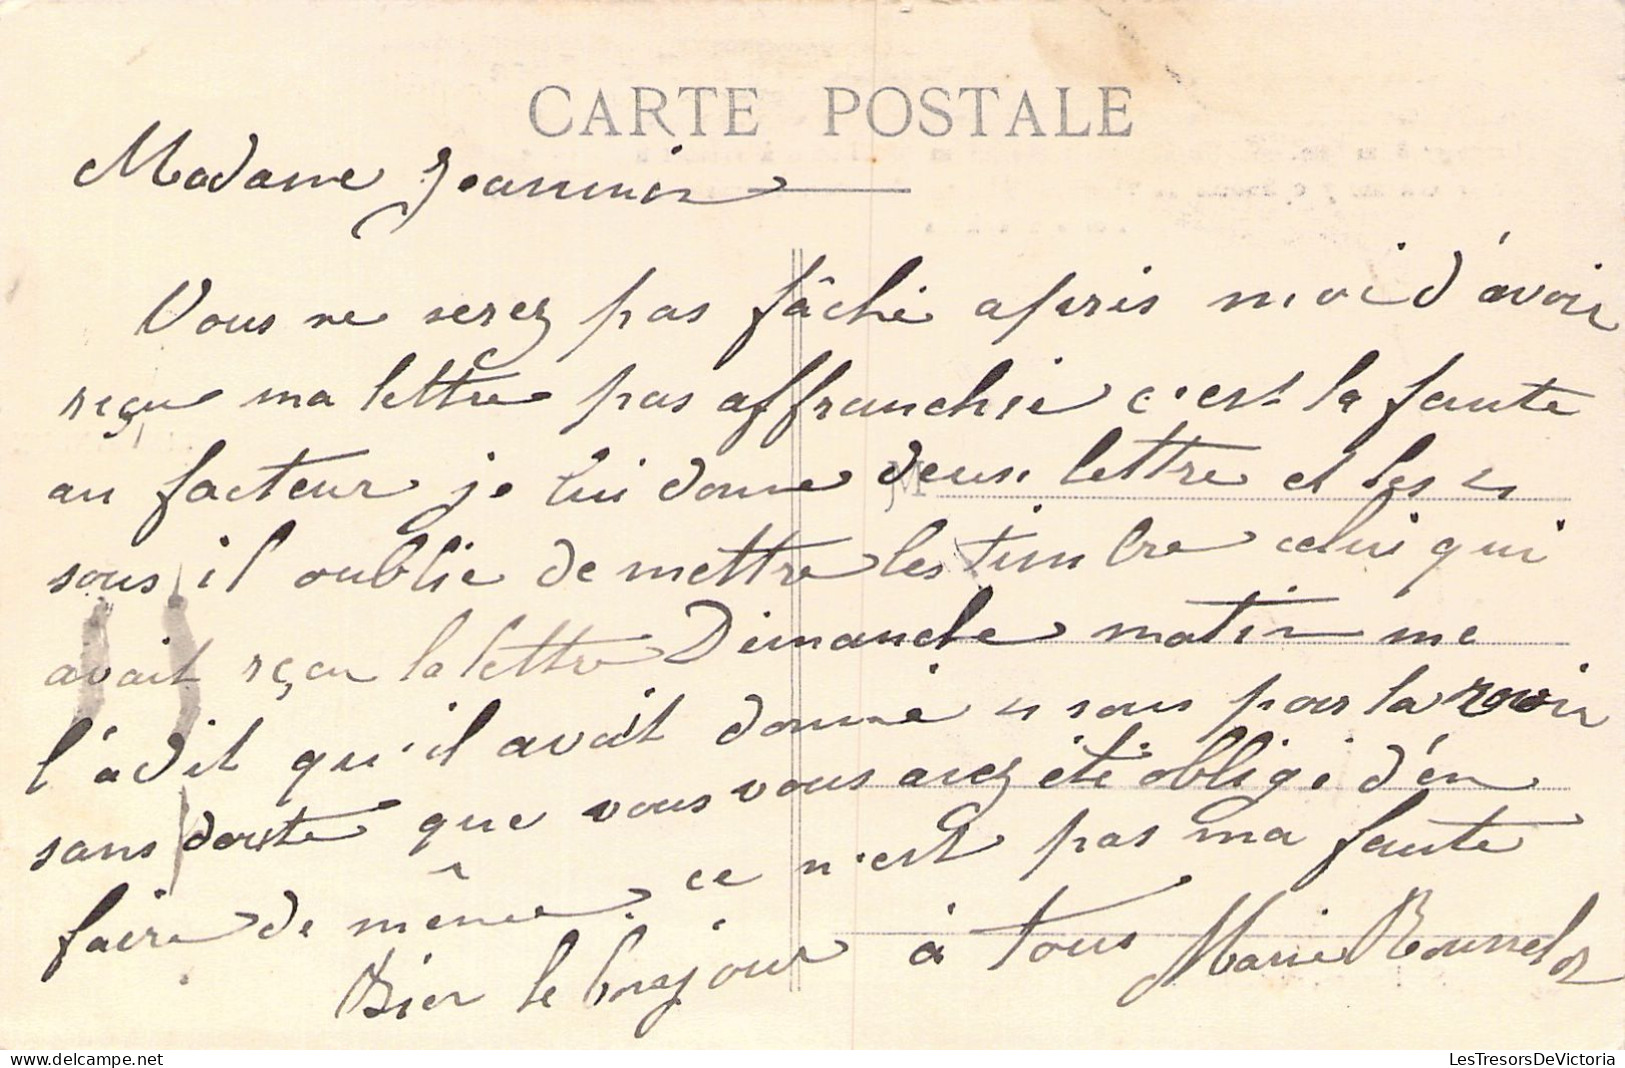 CARTE POSTALE
Madame Jeannin
Vous ne serez pas fâché apris moi d'avoir
reçu ma lettre pas affranchie c'est la faute
au facteur je lui donne deux lettre et les 4
M
sous il oublie de mettre les timbre celui qui
avait reçu la lettre Dimanche matin me
l'a dit qu'il avait donné 4 sous pour la
sans doute que vous vous avez été obligé d'en
faire de même. ce n'est pas ma faute
Bien le bonjour à tous Marie
LesTresorsDeVictoria
delcampe.net